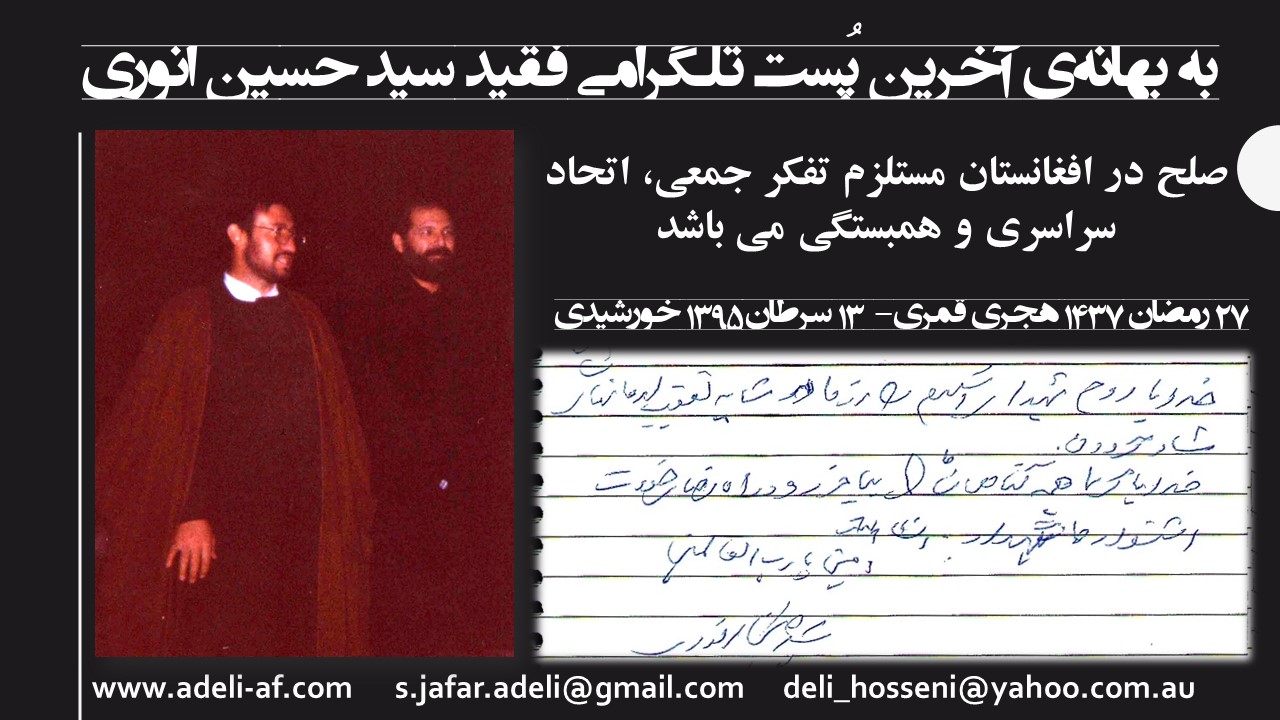 به بهانه‌ی آخرین پُست تلگرامی فقید سید حسین انوری
صلح در افغانستان مستلزم تفکر جمعی، اتحاد
سراسری و همبستگی می باشد
۲۷ رمضان ۱۴۳۷ هجری قمری- ۱۳ سرطان ۱۳۹۵ خورشیدی
خداوندا روح شهدای
شاد
خداوندا همه گناهان را بیامرز و در راه رضای خودت
استوار
آمین یا رب العالمین
سید حسین انوری
www.adeli-af.com s.jafar.adeli@gmail.com deli_hosseni@yahoo.com.au